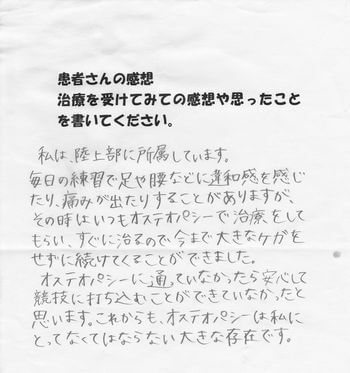 患者さんの感想
治療を受けてみての感想や思ったこと
を書いてください。
私は、陸上部に所属しています。
毎日の練習で足や腰などに違和感を感じ
たり、痛みが出たりすることがありますが、
その時はいつもオステオパシーで治療をして
もらい、すぐに治るので今まで大きなケガを
せずに続けてくることができました。
オステオパシーに通っていなかったら安心して
競技に打ち込むことができていなかったと
思います。これからも、オステオパシーは私に
とってなくてはならない大きな存在です。